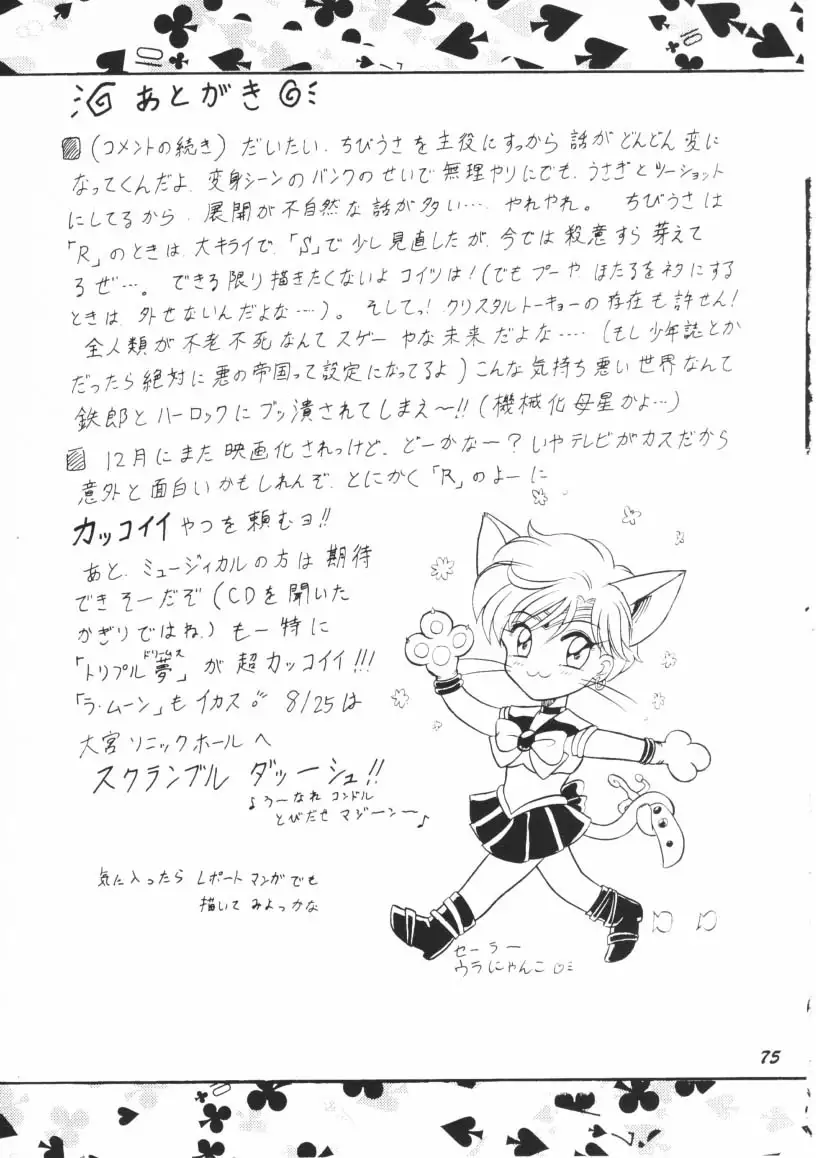 あとがき
(コメントの続き) だいたい、ちびうさを主役にすっから話がどんどん変に
なってくんだよ、変身シーンのバンクのせいで無理やりにでも、うさぎとツーショット
にしてるから、展開が不自然な話が多い…、やれやれ。ちびうさは
「R」のときは、大キライで、「S」で少し見直したが、今では殺意すら芽えて
るぜ…。できる限り描きたくないよコイツは!(でもプーや、ほたるをネタにする
ときは、外せないんだよな…)。そしてっ!クリスタルトーキョーの存在も許せん!
全人類が不老不死なんてスゲーやな未来だよな…‥(もし少年誌とか
だったら絶対に悪の帝国って設定になってるよ)こんな気持ち悪い世界なんて
鉄郎とハーロックにブッ潰されてしまえ〜!!(機械化母星かよ…)
12月にまた映画化されっけど、どーかなー?いやテレビがカスだから
意外と面白いかもしれんぞ、とにかく「R」のよーに
カッコイイやつを頼むヨ!!
あと、ミュージィカルの方は期待
できそーだぞ(CDを聞いた
かぎりではね。)もー特に
ドリームス
「トリプル夢」が超カッコイイ!!!
「ラ・ムーン」もイカス 8/25は
大宮ソニックホールへ
スクランブル ダッーシュ!!
♪うーなれ コンドル
とびだせ マジーンー♪
気に入ったら Lポートマンガでも
描いてみよっかな
セーラー
ウラにゃんこ
75